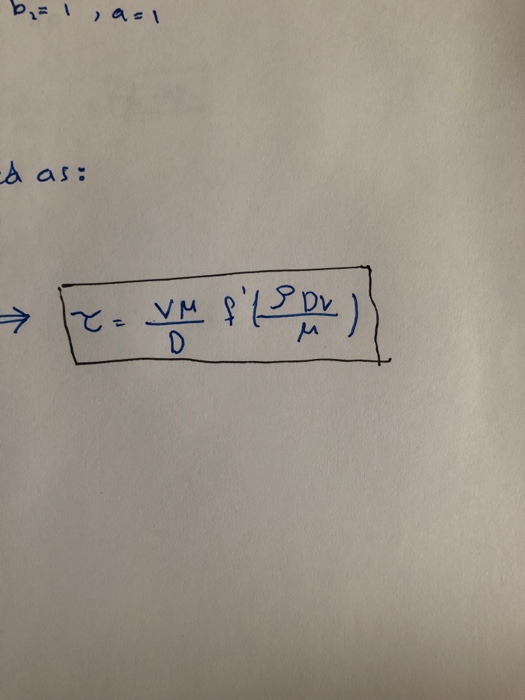 b₂= 1 , a = 1
d as:
⇒ τ = Vμ/D f'(ρDV/μ)